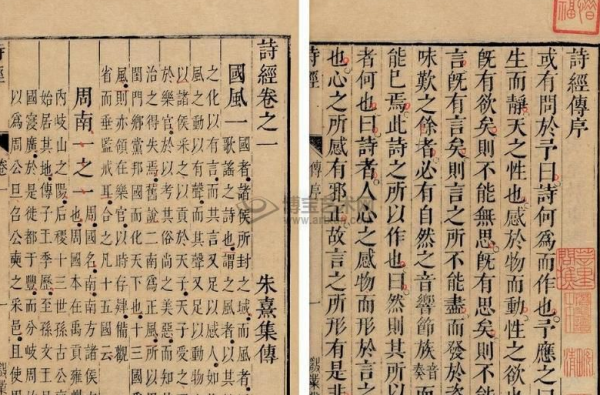 詩經傳序
或有問於予曰詩何為而作也予應之曰
生而靜天之性也感於物而動性之欲
既有欲矣則不能無思既有思矣則不能
言既有言矣則言之所不能盡而發於
歎之餘者必有自然之音響節族奏而
能已焉此詩之所以作也曰然則其所以
者何也曰詩者人心之感物而形於言之
也心之所感有邪正故言之所形有是非
詩經 傳序
詩經卷之一 朱熹集傳
國風一 國者諸侯所封之域而風者
歌謠之詩也謂之風者以其
之化以有言而其言又足以感人如
風之動以有聲而其聲又足以動物
以諸侯采之以貢於天子天子受之
於樂官於以考其俗尚之美惡而知
治之得失焉舊說二南為正風所以
閨門鄉黨邦國而化天下也十三國
風則亦領在樂官以時存肄備觀
省而垂監戒耳合之凡十五國云
周南一之一 周國名南南方諸侯
也周國本在禹貢雍
內岐山之陽后稷十三世孫古公
始居其地傳子王季歷至孫文王
國寖廣於是徙都于豐而分岐周
以為周公旦召公奭之采邑且使周
詩經 卷一